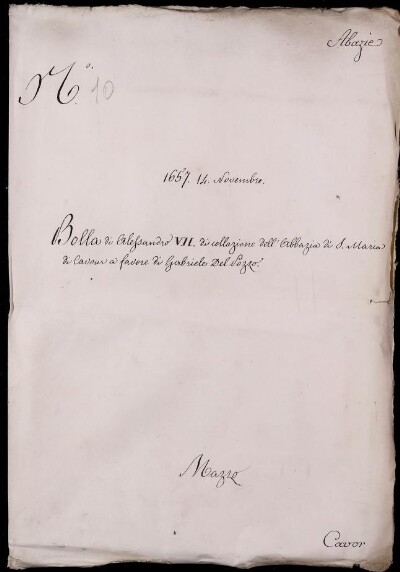 Abazie
N.º 10
1657. 14. Novembre.
Bolla di Alessandro VII. di collazione dell'Abbazia di S. Maria
di Cavour a favore di Gabriele Del Pozzo.
Mazzo
Cavor